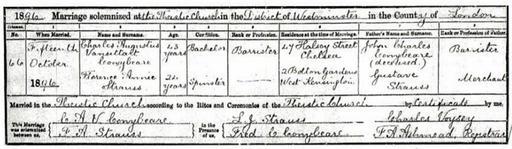 1896 Marriage solemnized at the Theistic Church in the District of Westminster in the County of London
No. When Married. Name and Surname. Age. Condition. Rank or Profession. Residence at the time of Marriage. Father's Name and Surname. Rank or Profession of Father.
66 Fifteenth October 1896 Charles Augustus Vansittart Conybeare 43 years Bachelor Barrister 17 Halsey Street Chelsea John Charles Conybeare (deceased) Barrister
Florence Annie Strauss 21 years Spinster 2 Bolton Gardens West Kensington Gustave Strauss Merchant
Married in the Theistic Church according to the Rites and Ceremonies of the Theistic Church by Certificate by me,
This Marriage was solemnized between us, C. A. V. Conybeare
F. A. Strauss
In the Presence of us, Strauss
Fred. C. Conybeare
Charles Voysey
Registrar